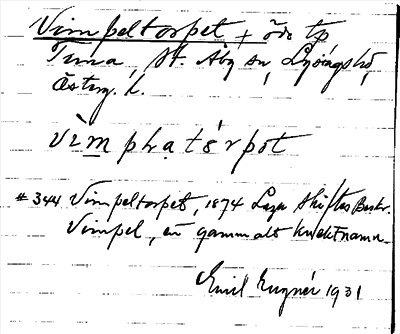 Vimpeltorpet, + öde tp
Tuna, St. Åby sn, Lysings hd,
Österg. l.
vìm phatórpət
# 344 Vimpeltorpet, 1874 Laga skiftes Beskr.
Vimpel, en gammalt knektnamn.
Emil 1931